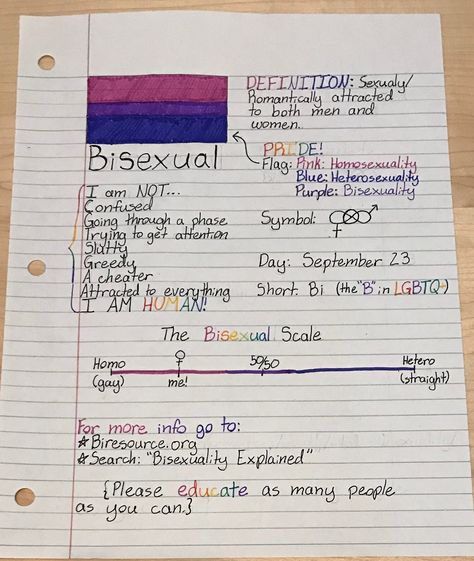 DEFINITION: Sexualy/
Romantically attracted
to both men and
women.
Bisexual
PRIDE!
Flag: Pink: Homosexuality
Blue: Heterosexuality
Purple: Bisexuality
I am NOT...
Confused
Going through a phase
Trying to get attention
Slutty
Greedy
A cheater
Attracted to everything
I AM HUMAN!
Symbol:
Day: September 23
Short: Bi (the "B" in LGBTQ+)
The Bisexual Scale
Homo 50/50 Hetero
(gay) me! (straight)
For more info go to:
☆Biresource.org
☆Search: "Bisexuality Explained"
{Please educate as many people
as you can.}